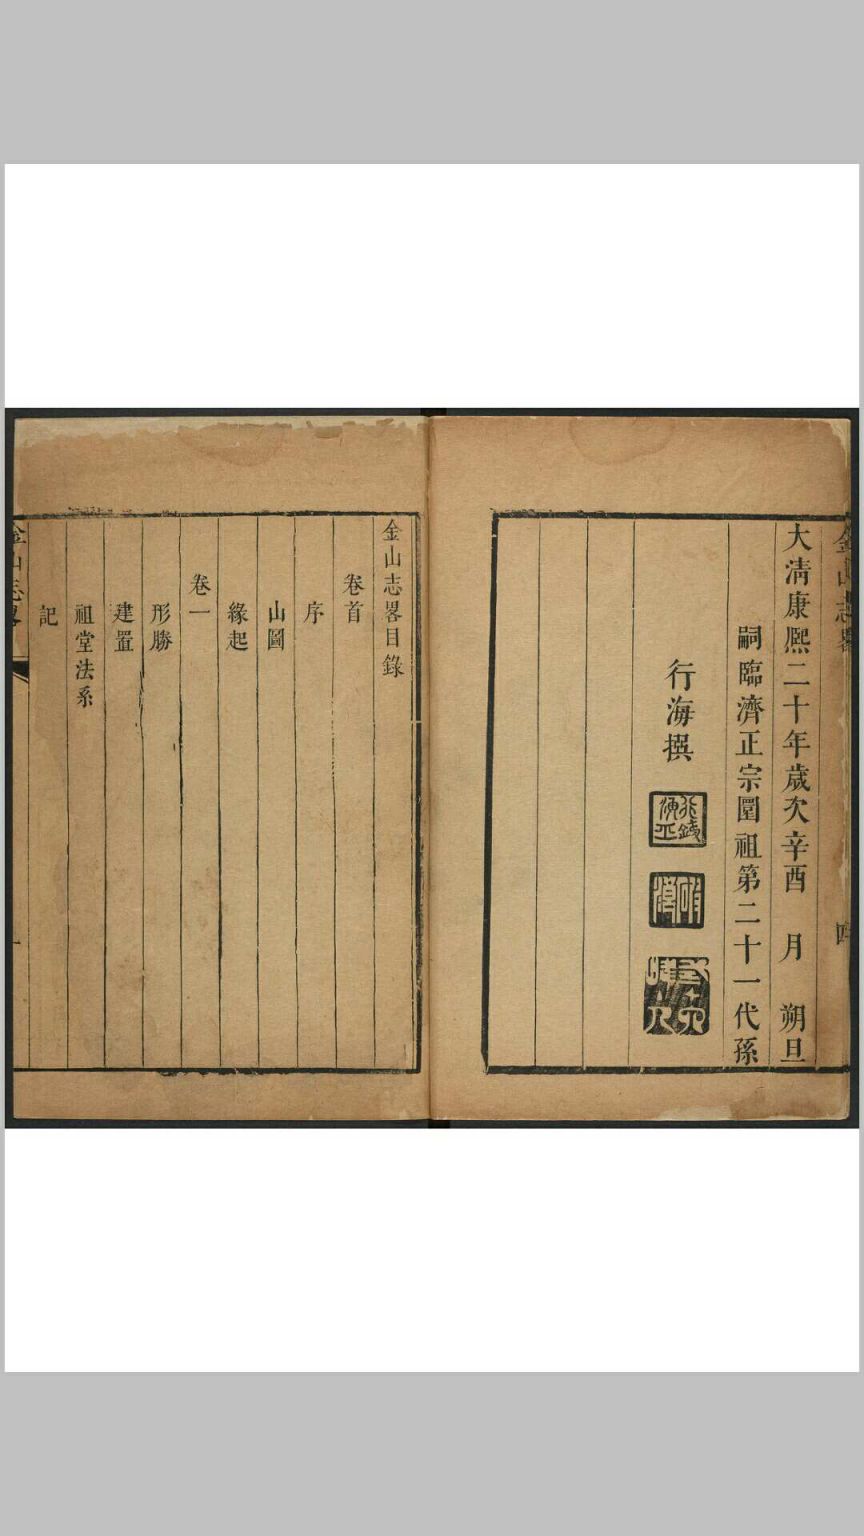 大清康熙二十年歲次辛酉　月　朔旦
嗣臨濟正宗圜祖第二十一代孫
行海撰
金山志畧目錄
卷首
序
山圖
緣起
卷一
形勝
建置
祖堂法系
記
金山志畧